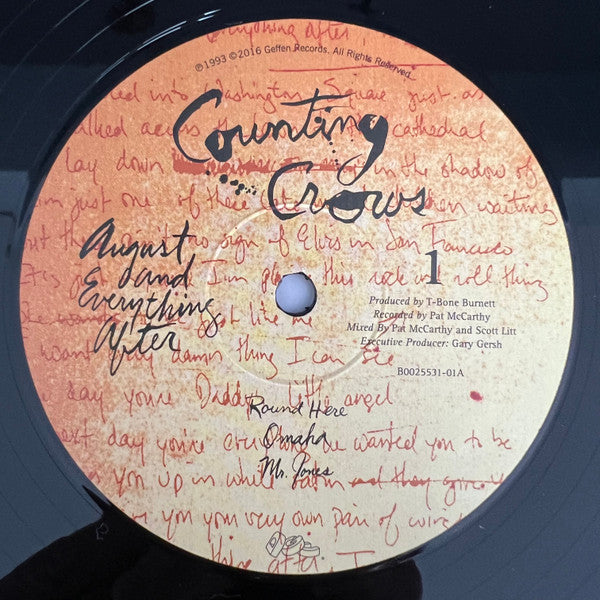 Everything After,
℗1993 ©2016 Geffen Records. All Rights Reserved.
into Washington Square just as
across the cathedral
lay down in the shadow of
just one of these waiting
sign of Elvis in San Francisco
this rock and roll thing
like me
want damn thing I can see
day you're Daddy's little angel
day you're wanted you to be
you up in white and they gave
you your very own pair of
after, I
Counting
Crows
August
and
Everything
After
1
Produced by T-Bone Burnett
Recorded by Pat McCarthy
Mixed By Pat McCarthy and Scott Litt
Executive Producer: Gary Gersh
B0025531-01A
Round Here
Omaha
Mr. Jones